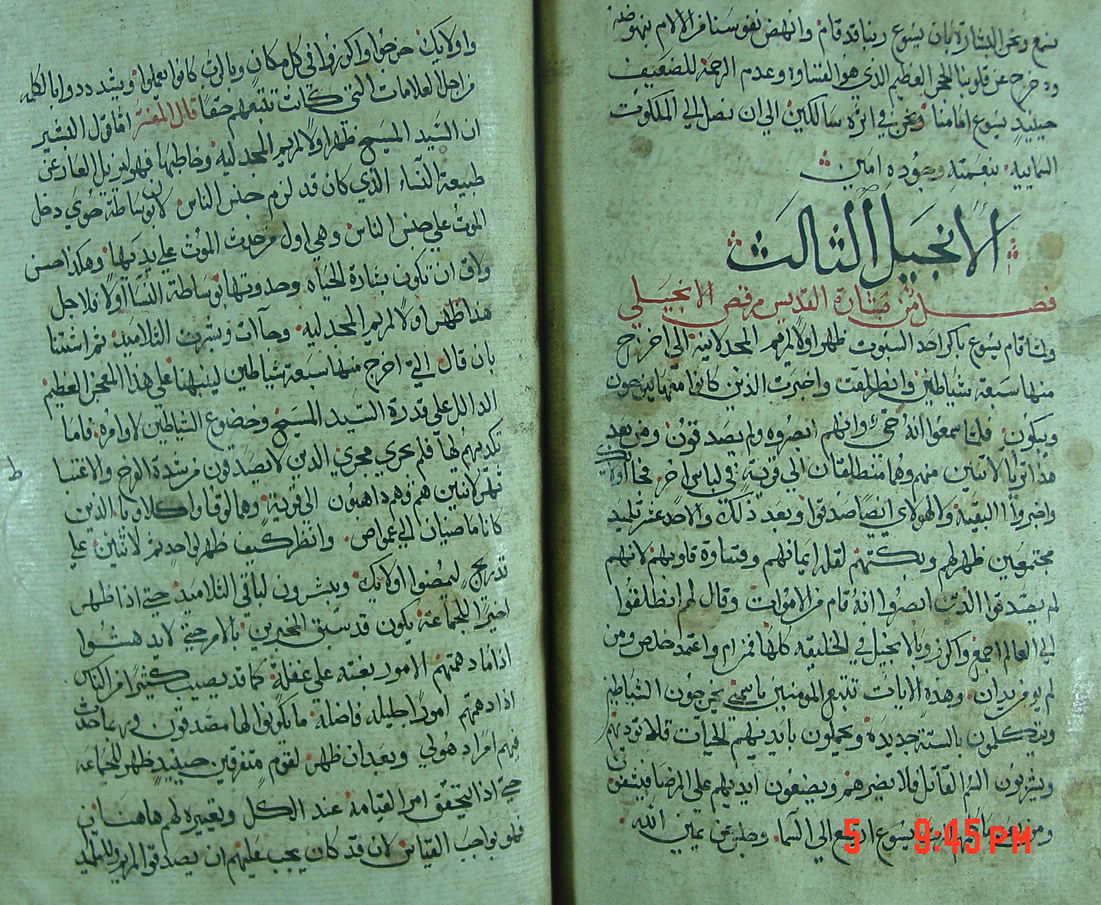 نسمع ونحن البشارة بان يسوع ربنا قد قام وانهض نفوسنا من الالام بنهوضه
ودحرج عن قلوبنا الحجر العظيم الذي هو القساوة وعدم الرحمة للضعيف
حينيدٍ يسوع امامنا ونحن في اثره سالكين الى ان نصل الي الملكوت
السماييه بنعمته وجوده امين
الانجيل الثالث
فصل من بشارة القديس مرقص الانجيلي
ولما قام يسوع باكر احد السبوت ظهر اولا لمريم المجدلانية التي اخرج
منها سبعة شياطين وانطلقت واخبرت الذين كانوا معها ينوحون
ويبكون فلما سمعوا انه حي وانهم ابصروه ولم يصدقون ومن بعد
هذا لاتنين منهم وهما منطلقان الي قرية في لباس اخر فجاا
واخبروا البقية والهولاي ايضا صدقوا وبعد ذلك والاحد عشر تلميد
مجتمعين ظهر لهم وبكتهم لقلة ايمانهم وقساوة قلوبهم لانهم
لم يصدقوا الذين ابصروا انه قام من الاموات وقال لهم انطلقوا
الي العالم اجمع واكرزوا بالانجيل في الخليقة كلها فمن امن واعتمد خلص ومن
لم يومن يدان وهده الايات تتبع المومنين باسمي يخرجون الشياطين
ويتكلمون بالسنة جديدة ويحملون بايديهم الحيات فلا توديهم
ويشربون السم القاتل فلا يضرهم ويضعون ايديهم علي المرضا فيشفون
ومن بعد يسوع ارتفع الي السما وجلس عن يمين الله
5 9:45 PM
واولايك خرجوا واكرزوا في كل مكان وبالرب كانوا يعملوا ويشددوا بالكلمه
من اجل العلامات التي كانت تتبعهم حقا قال المفسر اما قول البشير
ان السيد المسيح ظهر اولا لمريم المجدليه وخاطبها فهو لمزيل العار عن
طبيعة النساء الذي كان قد لزم جنس الناس لان بوساطة حوي دخل
الموت علي جنس الناس وهي اول من حدث الموت علي يديها وهكذا حسن
ولاق ان تكون بشارة الحياه وحدوثها بوساطة النسا اولا فلاجل
هذا ظهر اولا لمريم المجدليه وجاات وبشرت التلاميد تم استثنا
بان قال التي اخرج منها سبعة شياطين لينبهنا علي هذا العجز العظيم
الدال علي قدرة السيد المسيح وخضوع الشياطين لاوامره فاما
تكديبهم لها فلم يجري مجري الدين لا يصدقون من شدة الفرح والاغتبا
ط
فهو لاتنين هم وهم داهبون الي قرية وهما لوقا واكلاوبا الدين
كانا ماضيان الي عمواص وانظر كيف ظهر لواحد تم لاتنين علي
تدريج ليمضوا اولايك ويبشرون لباقي التلاميد حتي اذا ظهر
اخيرا للجماعة يكون قد سبق المخبرين بالامر حتي لا يدهشوا
اذا ما دهمتهم الامور بغتة علي غفلة كما قد يصيب كثيرا من الناس
اذا دهمتهم امورا جليله فاضله ما يكونوا لها مصدقون فربما حدث
فيهم امرا دهولي وبعد ان ظهر لقوم متفرقين حينيد ظهر للجماعه
حتي اذا تحقق امر القيامة عند الكل وتعييره لهم هاهنا
فهو بواجب القياس لان قد كان يجب عليهم ان يصدقوا لمريم وللتلميد